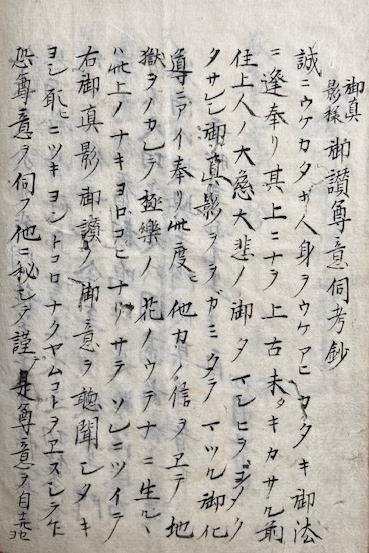 御真影様 御讃尊意伺考鈔
誠ニウケカタキ人身ヲウケアヒカタキ御法
ニ逢奉リ其上ニナヲ上古未タキカサル前
住上人ノ大慈大悲ノ御タマシヒヲ
タサレシ御真影ヲヲガミタテマツル御化
導ニアイ奉リ此度ヒ他力ノ信ヲヱテ地
獄ヲノカレテ極樂ノ花ノウテナニ生ルヽ
ハ此上ノナキヨロコヒナリサテソレニツイテ
右御真影御讃ノ御意ヲ聴聞シタキ
ヨシ ニツキヨントコロナクヤムコトヲヱスシテ
恐尊意ヲ伺フ他ニ秘シテ謹テ是尊意ヲ自